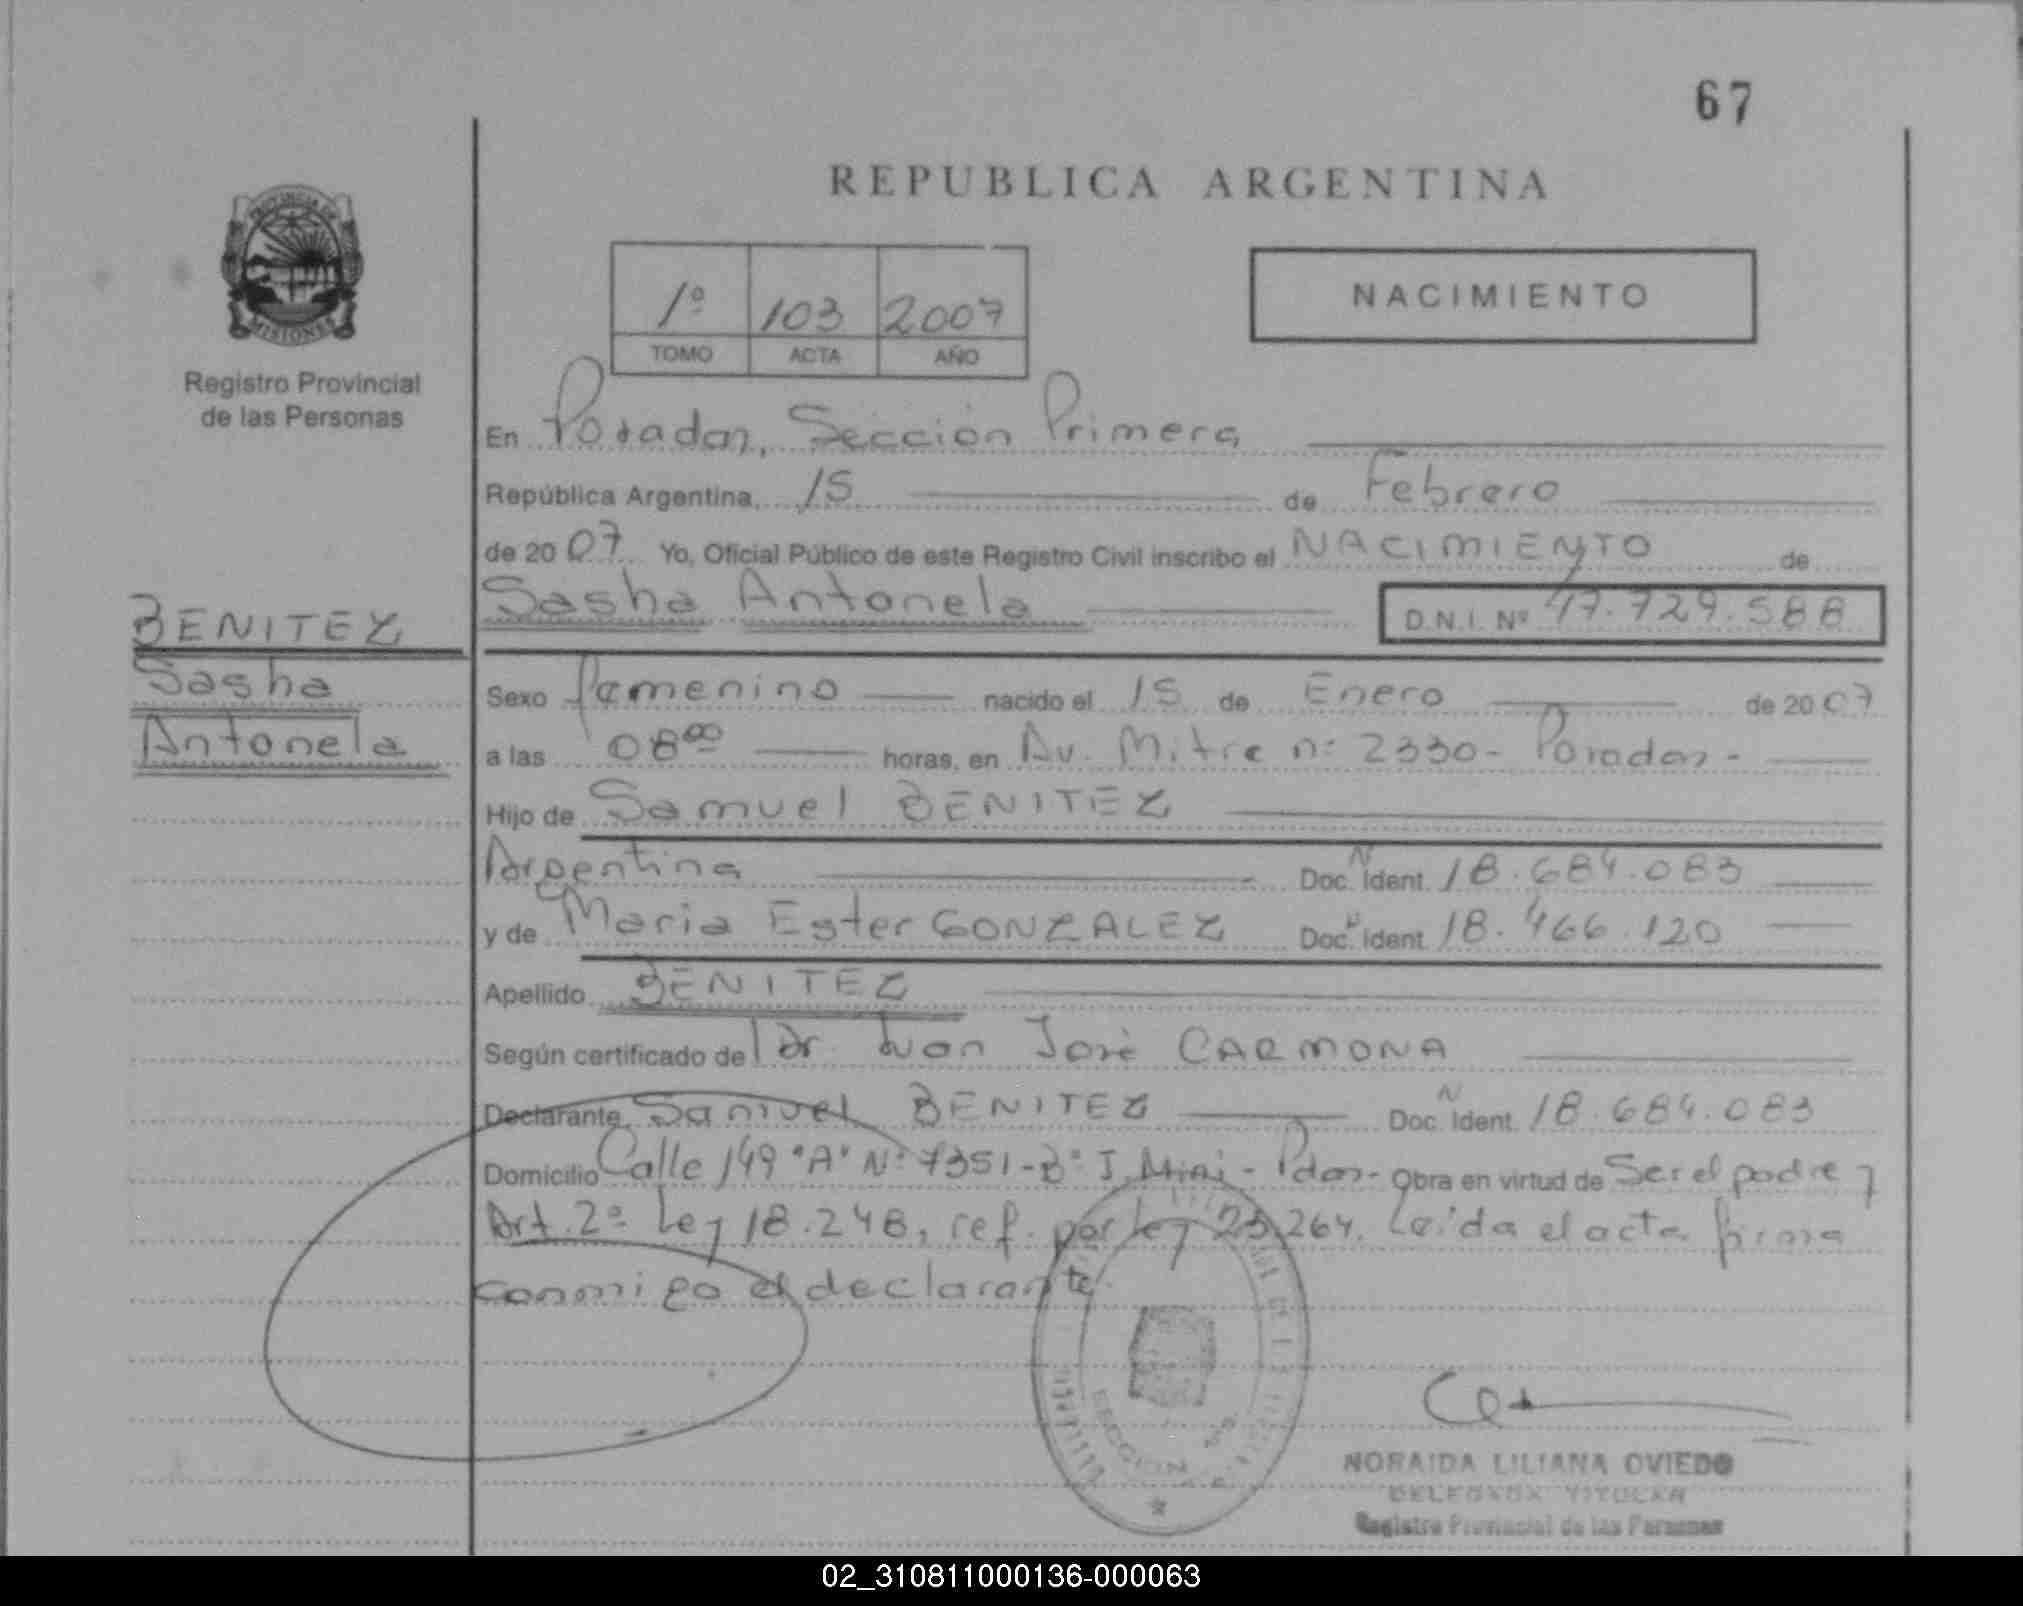 67
REPUBLICA ARGENTINA
PROVINCIA DE
MISIONES
Registro Provincial
de las Personas
1º 103 2007
TOMO ACTA AÑO
NACIMIENTO
En Posadas, Sección Primera
República Argentina, 15 de Febrero
de 2007 Yo, Oficial Público de este Registro Civil inscribo el NACIMIENTO de
Sasha Antonela D.N.I. Nº 47.729.588
BENITEZ
Sasha
Antonela
Sexo femenino nacido el 15 de Enero de 2007
a las 08⁰⁰ horas, en Av. Mitre nº 2330- Posadas -
Hijo de Samuel BENITEZ
Argentina Doc. N Ident. 18.684.083
y de Maria Ester GONZALEZ Doc. Ident. 18.466.120
Apellido BENITEZ
Según certificado del Dr. Juan José CARMONA
Declarante Samuel BENITEZ Doc. N Ident. 18.684.083
Domicilio Calle 149 "A" Nº 7351-Bº I. Mini - Pdas- Obra en virtud de Ser el padre y
Art. 2º Ley 18.248, ref. por ley 23.264. Leída el acta firma
conmigo el declarante.
SECCION
NORAIDA LILIANA OVIEDO
DELEGADA TITULAR
Registro Provincial de las Personas
02_310811000136-000063